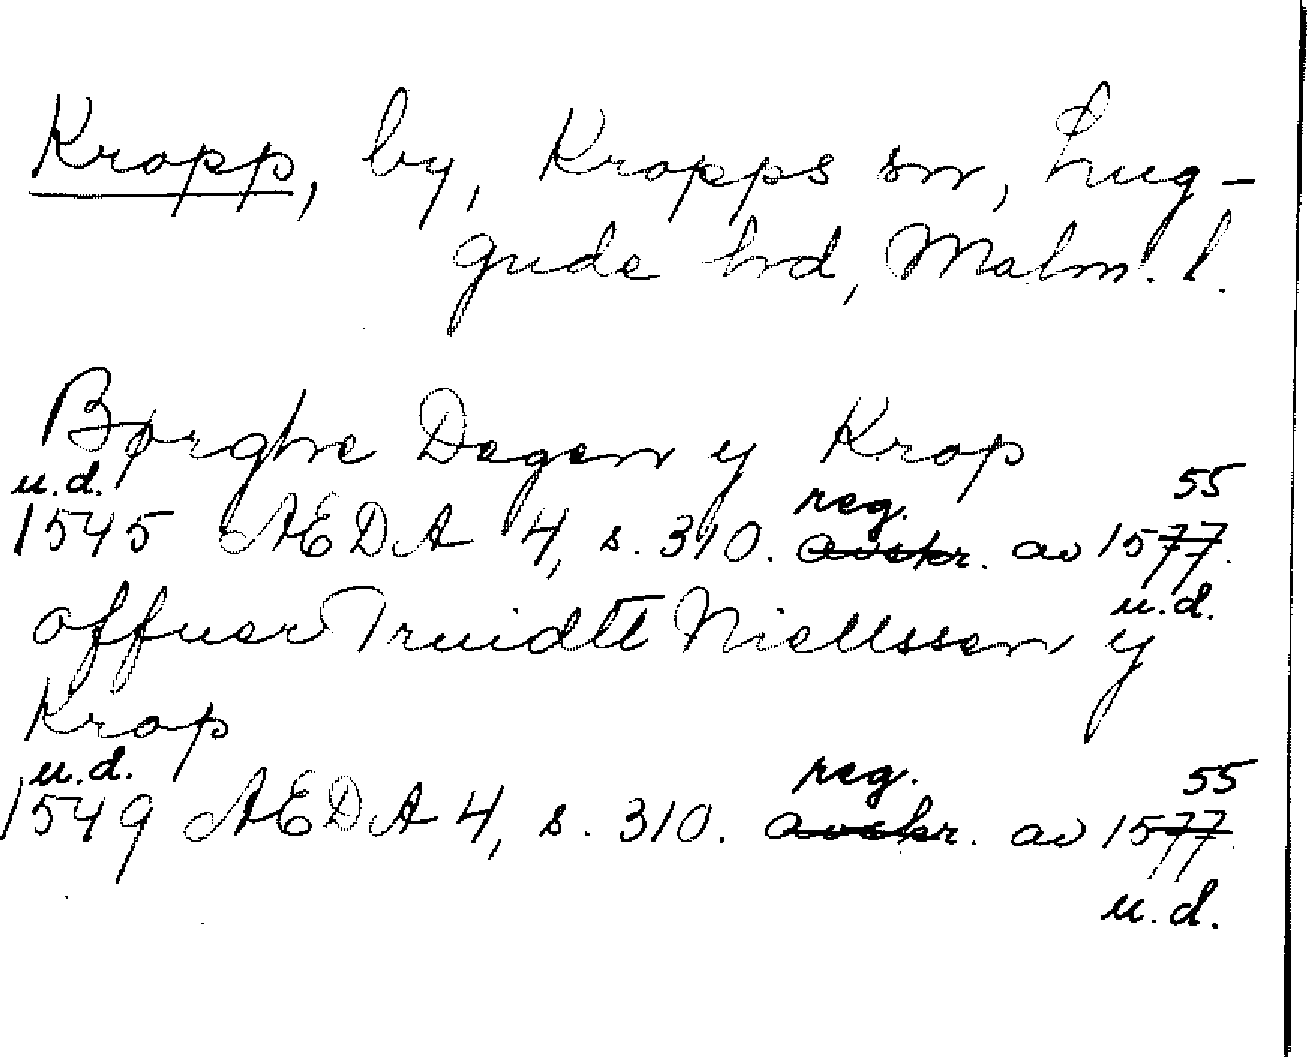 Kropp, by, Kropps sn, Lug-
gude hd, Malm. l.
Børghe Degen y Krop
u.d. reg. 55
1545 AEDA 4, s. 310. avskr. av 1577.
u.d.
offuer Truidtt Niellssen y
Krop
u.d. reg. 55
1549 AEDA 4, s. 310. avskr. av 1577.
u.d.